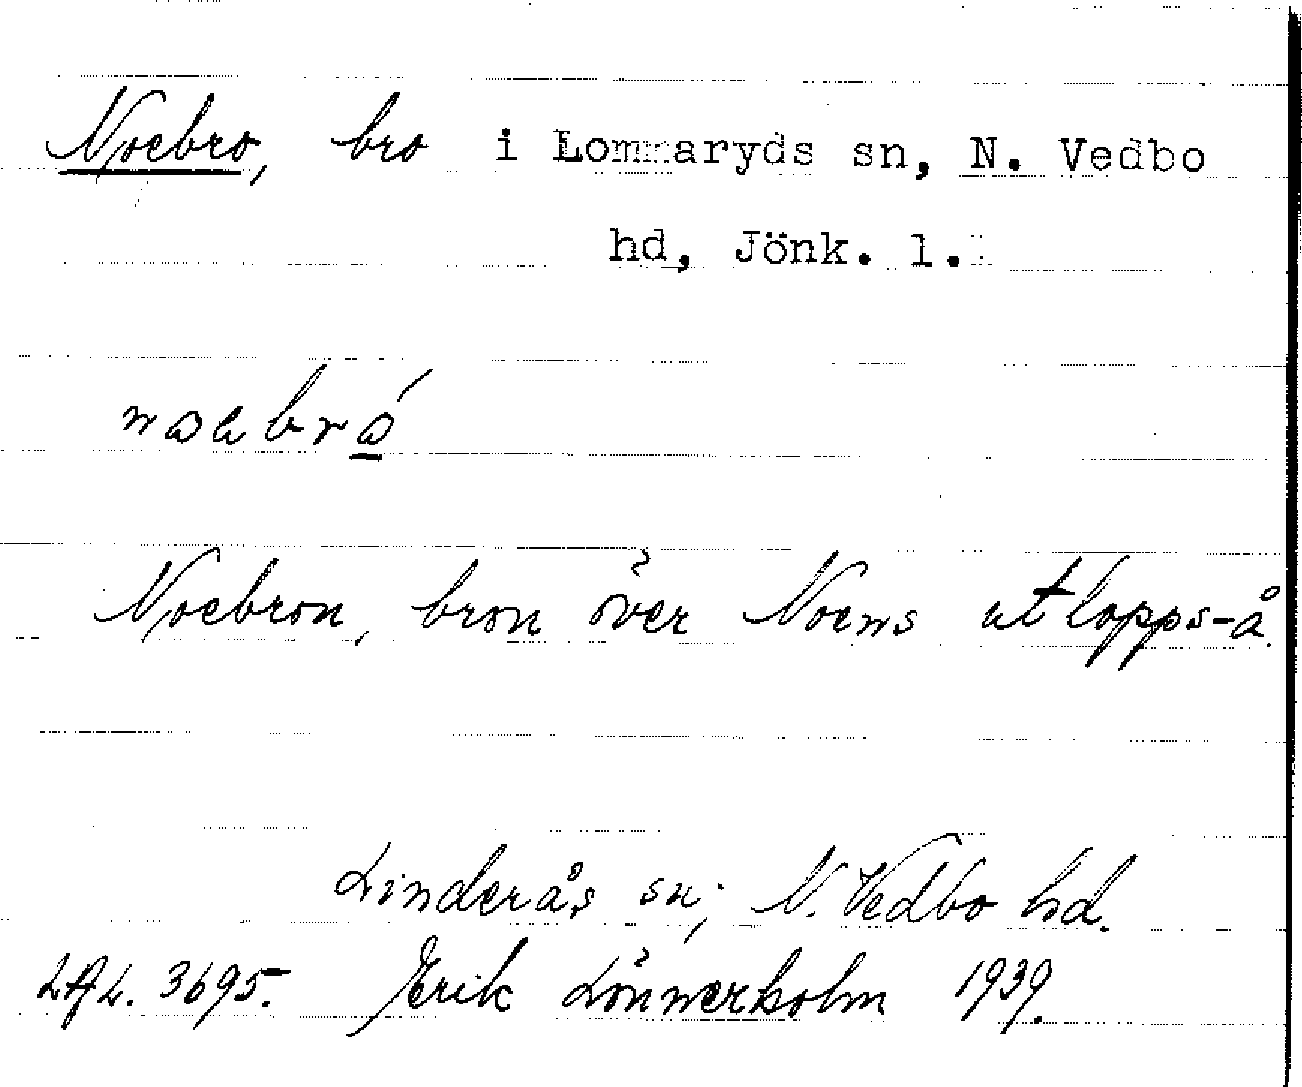 Noebro, bro i Lommaryds sn, N. Vedbo
hd, Jönk. l.
Noebron, bron över Noens utlopps-å.
Linderås sn; N. Vedbo hd.
LAL. 3695. Erik Lönnerholm 1939.